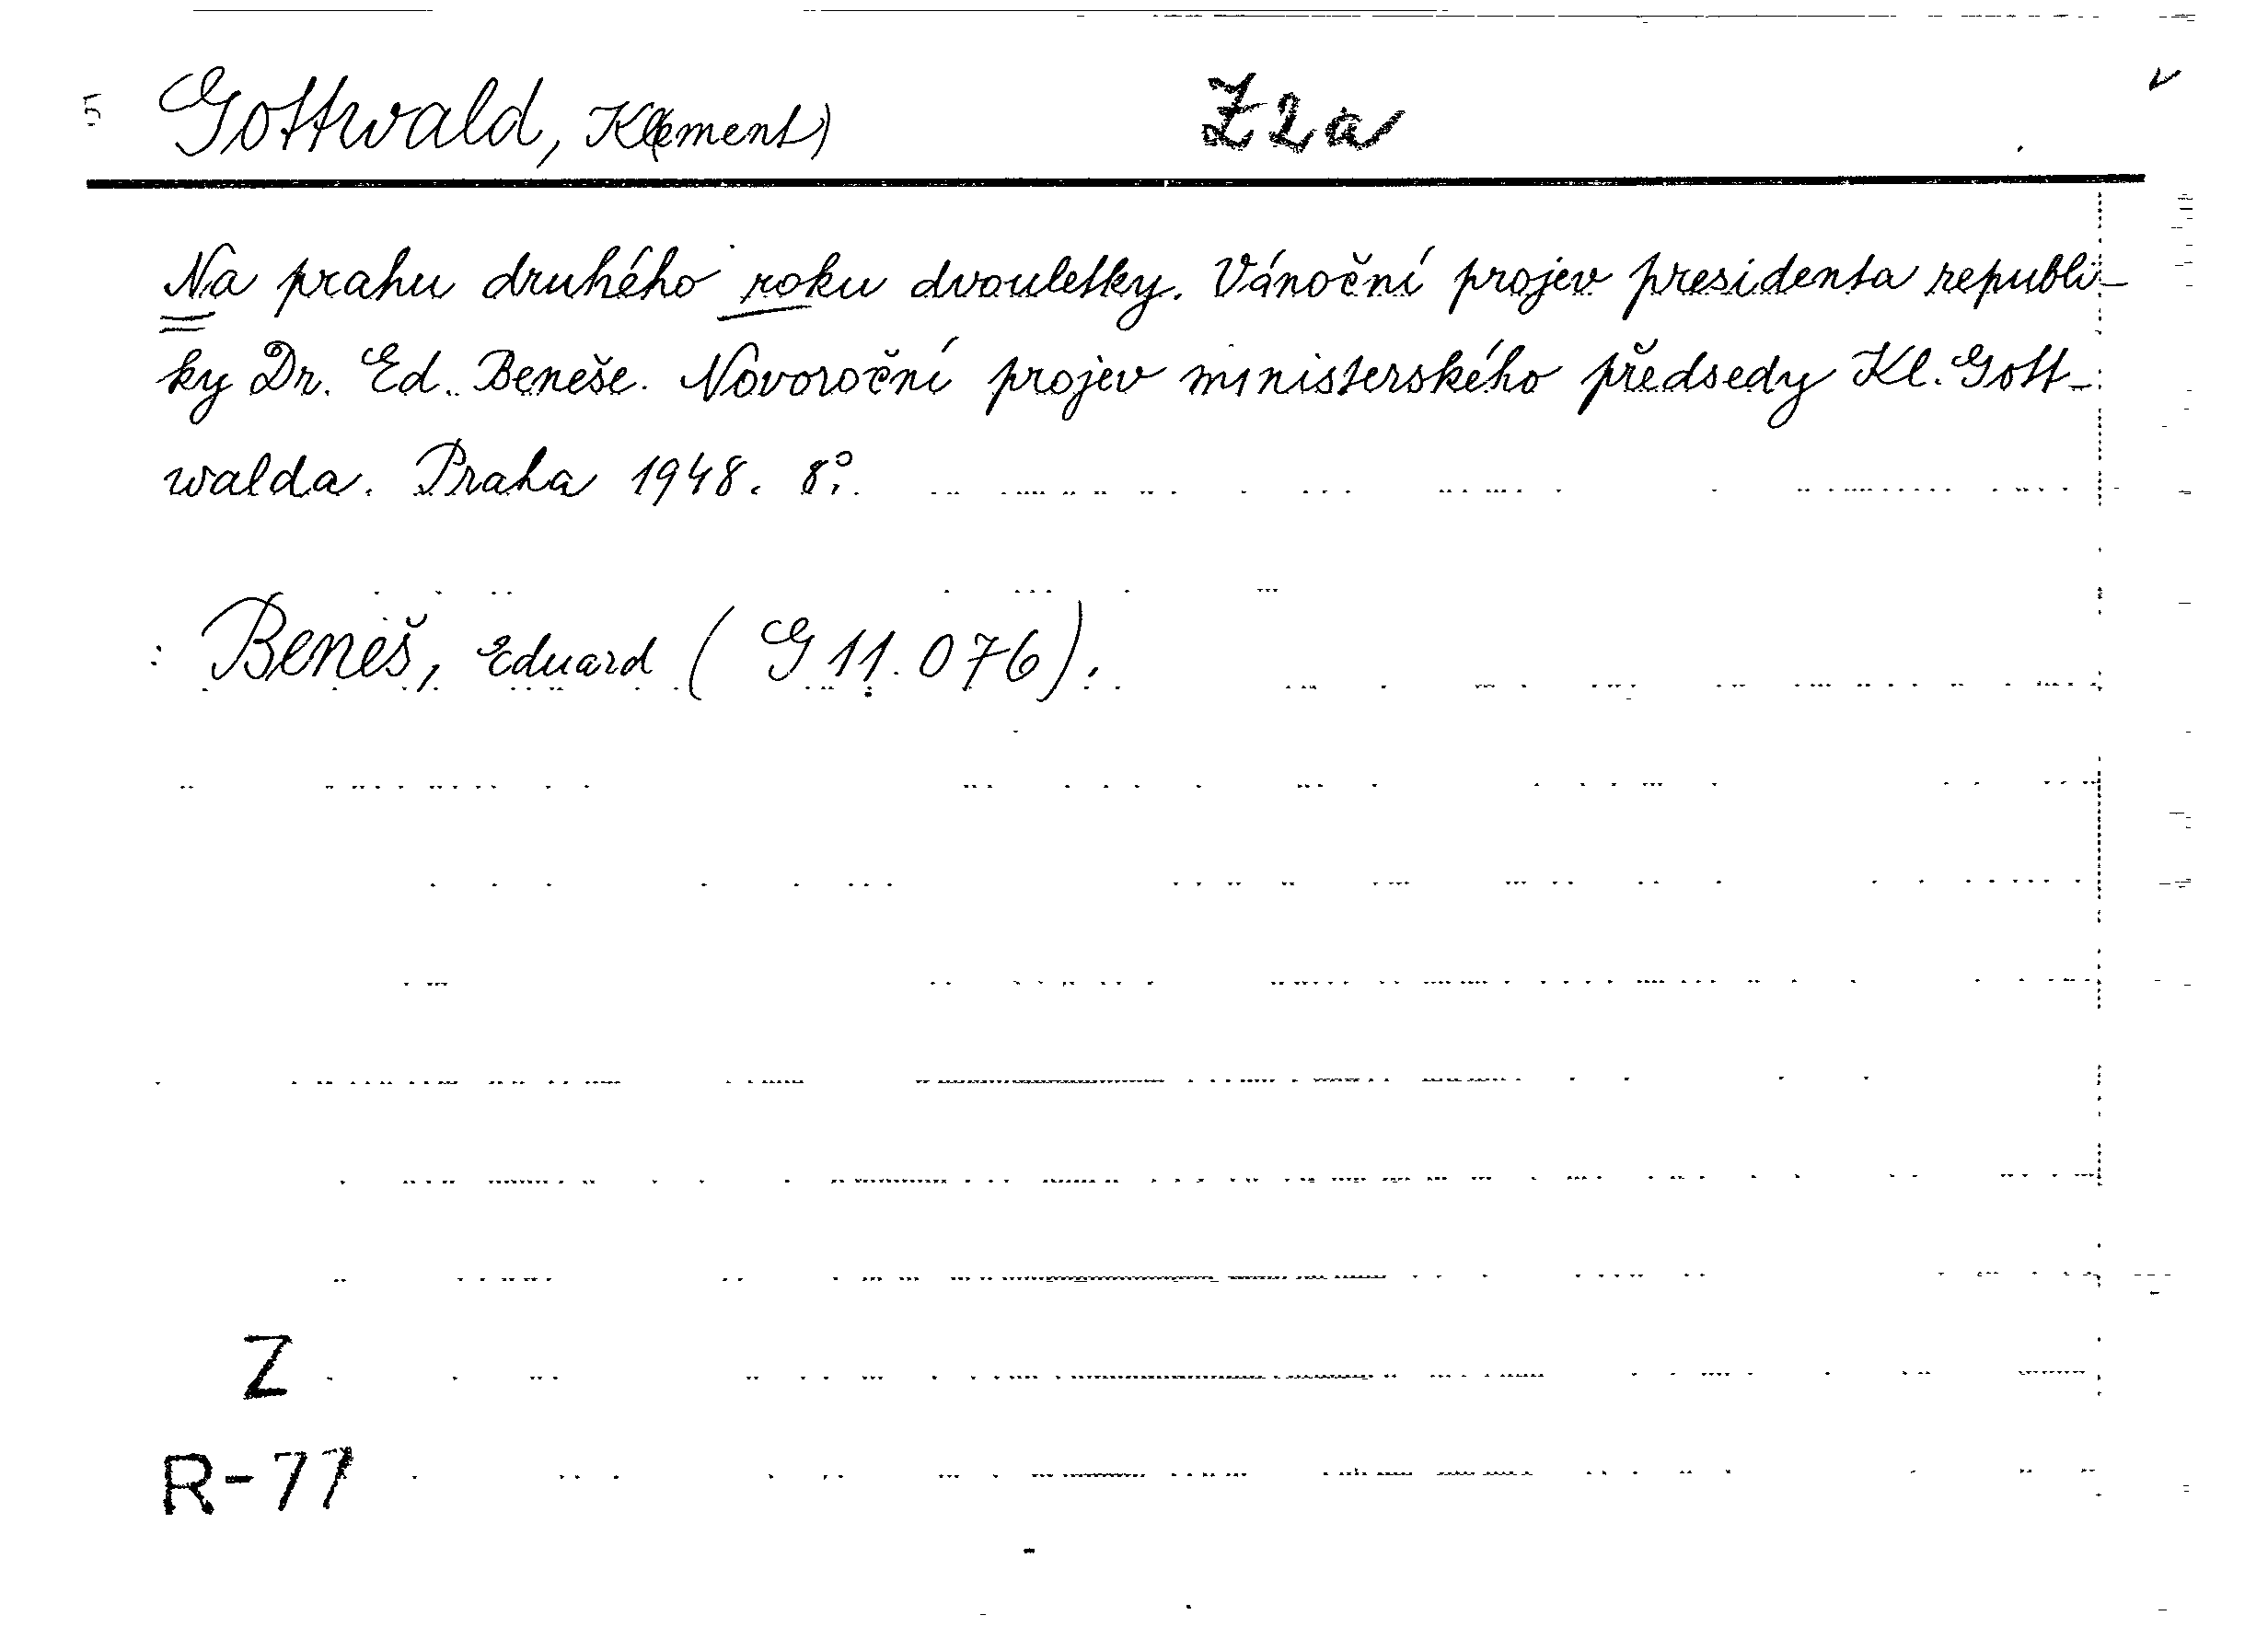 5 Gottwald, Kl(ement) Z 2 a
Na prahu druhého roku dvouletky. Vánoční projev presidenta republi-
ky Dr. Ed. Beneše. Novoroční projev ministerského předsedy Kl. Gott-
walda. Praha 1948. 8°.
: Beneš, Eduard (G 11.076).
Z
R-77